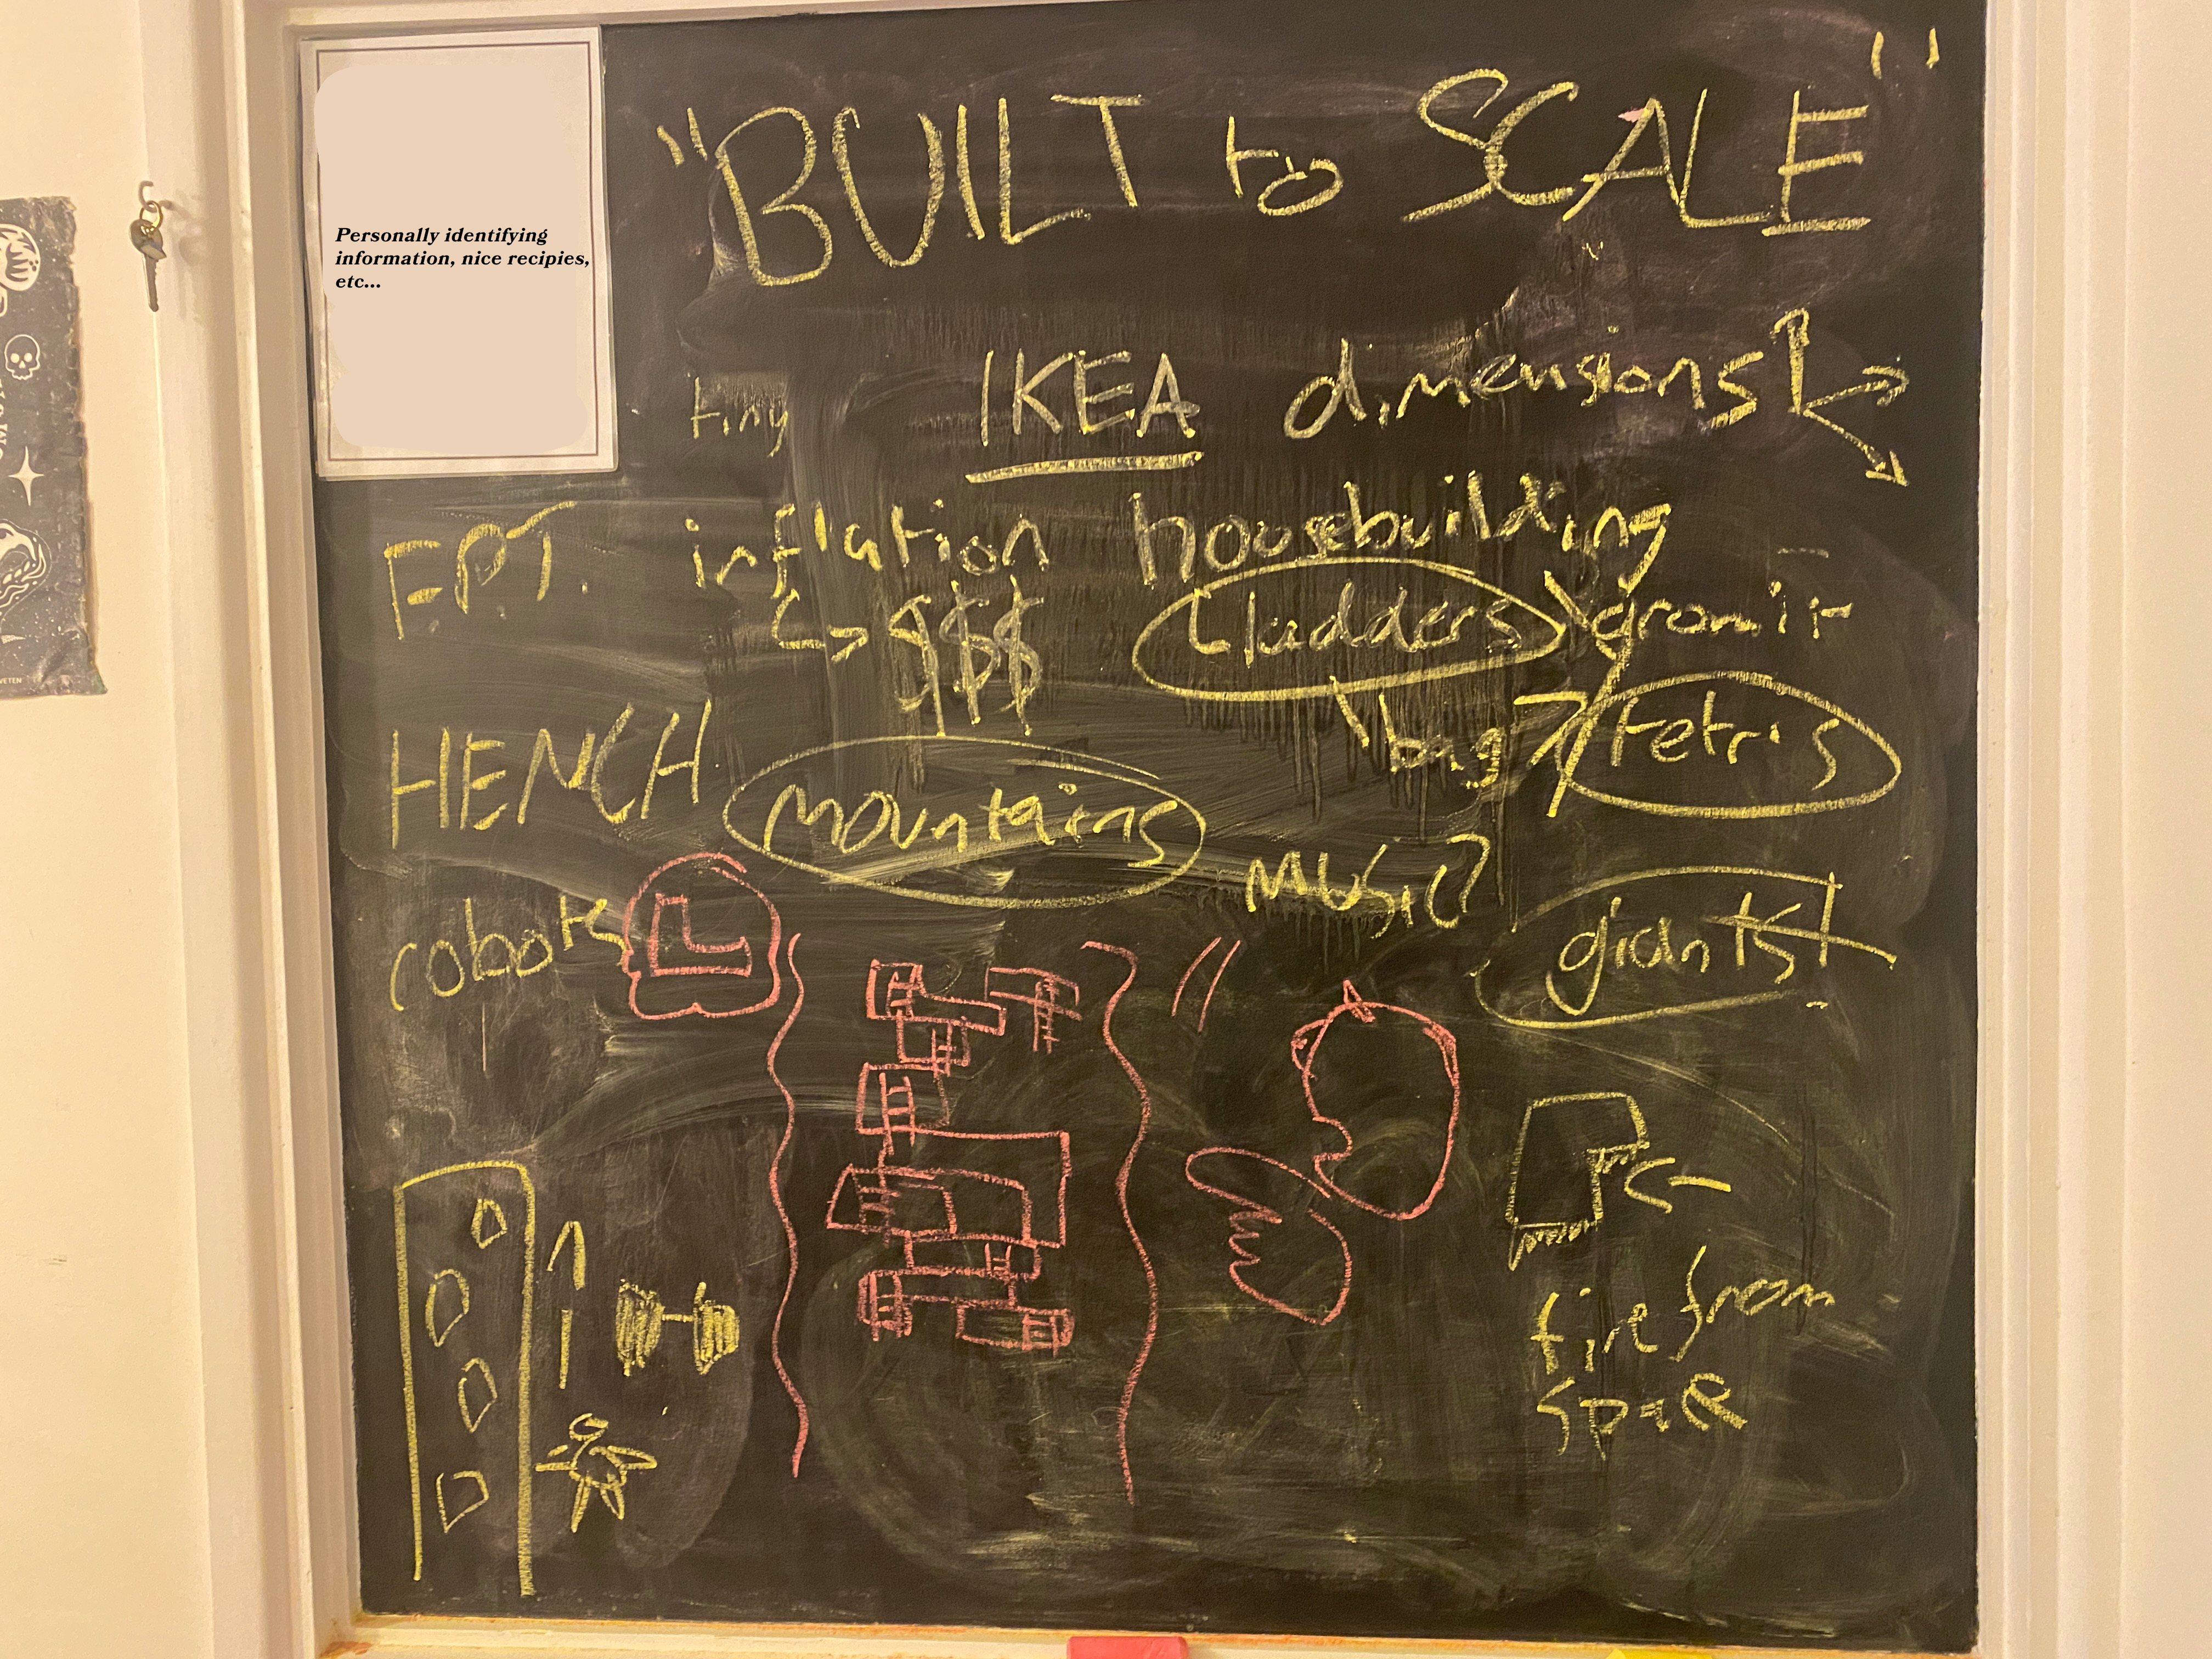 Personally identifying
information, nice recipies,
etc...
"BUILT to SCALE"
tiny IKEA dimensions
E.P.T. inflation housebuilding
$$$ ladders gromit
HENCH mountains bag tetris
music?
cobots giants!
L
fire from
space
VETEN